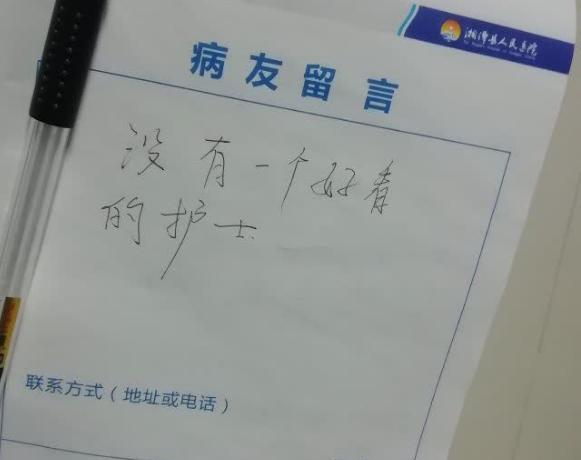 湘潭县人民医院
病友留言
没有一个好看
的护士
联系方式（地址或电话）